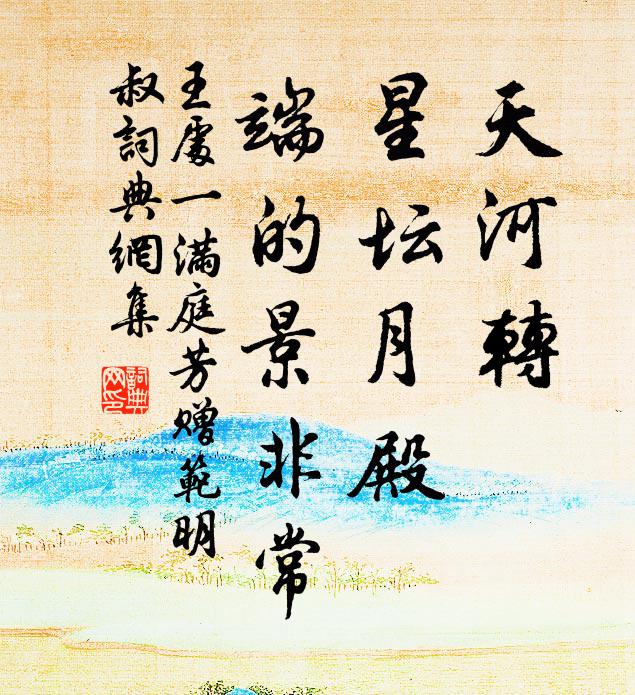 天河轉
星坛月殿
端的景非常
王處一滿庭芳赠範明
叔詞典網集
詞典
网印